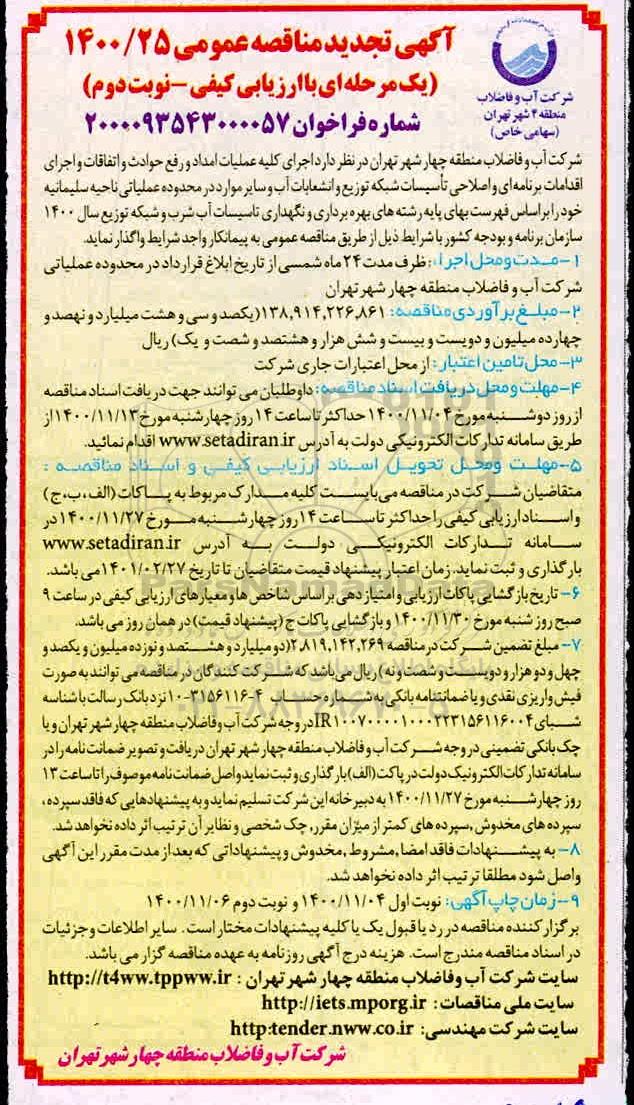 آگهی تجدید مناقصه عمومی ۱۴۰۰/۲۵
(یک مرحله ای با ارزیابی کیفی - نوبت دوم)
شماره فراخوان ۲۰۰۰۰۹۳۵۴۳۰۰۰۰۵۷
شرکت آب و فاضلاب
منطقه ۴ شهر تهران
(سهامی خاص)
شرکت آب و فاضلاب منطقه چهار شهر تهران در نظر دارد اجرای کلیه عملیات امداد و رفع حوادث و اتفاقات و اجرای
اقدامات برنامه ای و اصلاحی تأسیسات شبکه توزیع و انشعابات آب و سایر موارد در محدوده عملیاتی ناحیه سلیمانیه
خود را بر اساس فهرست بهای پایه رشته های بهره برداری و نگهداری تاسیسات آب شرب و شبکه توزیع سال ۱۴۰۰
سازمان برنامه و بودجه کشور با شرایط ذیل از طریق مناقصه عمومی به پیمانکار واجد شرایط واگذار نماید.
۱- مدت و محل اجرا: ظرف مدت ۲۴ ماه شمسی از تاریخ ابلاغ قرارداد در محدوده عملیاتی
شرکت آب و فاضلاب منطقه چهار شهر تهران
۲- مبلغ برآوردی مناقصه: ۱۳۸,۹۱۴,۲۲۶,۸۶۱(یکصد و سی و هشت میلیارد و نهصد و
چهارده میلیون و دویست و بیست و شش هزار و هشتصد و شصت و یک) ریال
۳- محل تامین اعتبار: از محل اعتبارات جاری شرکت
۴- مهلت و محل دریافت اسناد مناقصه: داوطلبان می توانند جهت دریافت اسناد مناقصه
از روز دوشنبه مورخ ۱۴۰۰/۱۱/۰۴ حداکثر تا ساعت ۱۴ روز چهارشنبه مورخ ۱۴۰۰/۱۱/۱۳ از
طریق سامانه تدارکات الکترونیکی دولت به آدرس www.setadiran.ir اقدام نمائید.
۵- مهلت ومحل تحویل اسناد ارزیابی کیفی و اسناد مناقصه :
متقاضیان شرکت در مناقصه می بایست کلیه مدارک مربوط به پاکات (الف، ب، ج)
و اسناد ارزیابی کیفی را حداکثر تا ساعت ۱۴ روز چهارشنبه مورخ ۱۴۰۰/۱۱/۲۷ در
سامانه تدارکات الکترونیکی دولت به آدرس www.setadiran.ir
بارگذاری و ثبت نماید. زمان اعتبار پیشنهاد قیمت متقاضیان تا تاریخ ۱۴۰۱/۰۲/۲۷ می باشد.
۶- تاریخ بازگشایی پاکات ارزیابی و امتیاز دهی بر اساس شاخص ها و معیارهای ارزیابی کیفی در ساعت ۹
صبح روز شنبه مورخ ۱۴۰۰/۱۱/۳۰ و بازگشایی پاکات ج (پیشنهاد قیمت) در همان روز می باشد.
۷- مبلغ تضمین شرکت در مناقصه ۲,۸۱۹,۱۴۲,۲۶۹(دو میلیارد و هشتصد و نوزده میلیون و یکصد و
چهل و دو هزار و دویست و شصت و نه ) ریال می باشد که شرکت کنندگان در مناقصه می توانند به صورت
فیش واریزی نقدی و یا ضمانتنامه بانکی به شماره حساب ۴-۳۱۵۶۱۱۶-۱۰ نزد بانک رسالت با شناسه
شبای IR۱۰۰۷۰۰۰۰۱۰۰۰۲۲۳۱۵۶۱۱۶۰۰۴ در وجه شرکت آب و فاضلاب منطقه چهار شهر تهران و یا
چک بانکی تضمینی در وجه شرکت آب و فاضلاب منطقه چهار شهر تهران دریافت و تصویر ضمانت نامه را در
سامانه تدارکات الکترونیک دولت در پاکت (الف) بارگذاری و ثبت نماید واصل ضمانت نامه موصوف را تا ساعت ۱۳
روز چهارشنبه مورخ ۱۴۰۰/۱۱/۲۷ به دبیرخانه این شرکت تسلیم نماید و به پیشنهادهایی که فاقد سپرده ،
سپرده های مخدوش ،سپرده های کمتر از میزان مقرر، چک شخصی و نظایر آن ترتیب اثر داده نخواهد شد.
۸- به پیشنهادات فاقد امضا، مشروط ، مخدوش و پیشنهاداتی که بعد از مدت مقرر این آگهی
واصل شود مطلقا ترتیب اثر داده نخواهد شد.
۹- زمان چاپ آگهی: نوبت اول ۱۴۰۰/۱۱/۰۴ و نوبت دوم ۱۴۰۰/۱۱/۰۶
برگزار کننده مناقصه در رد یا قبول یک یا کلیه پیشنهادات مختار است . سایر اطلاعات و جزئیات
در اسناد مناقصه مندرج است. هزینه درج آگهی روزنامه به عهده مناقصه گزار می باشد.
سایت شرکت آب وفاضلاب منطقه چهار شهر تهران : http://t4ww.tppww.ir
سایت ملی مناقصات : http://iets.mporg.ir
سایت شرکت مهندسی: http:tender.nww.co.ir
شرکت آب و فاضلاب منطقه چهار شهر تهران